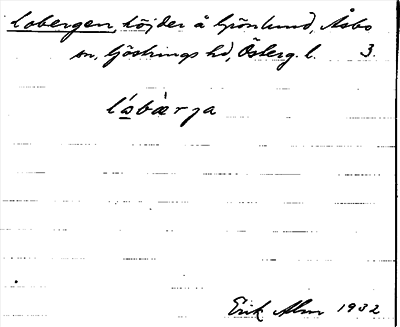 Lobergen, höjder å Grönlund, Åsbo
sn, Göstrings hd, Österg. l. 3.
lɑ́sbæ̀rja
Erik Alm 1932